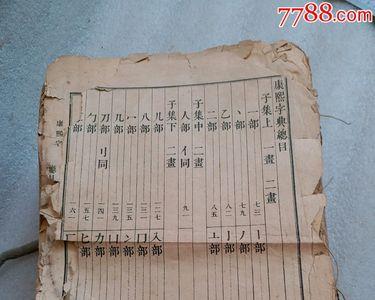 7788.com
康熙字典總目
子集上 一畫 二畫
一部 七三 丨部
丶部 七九 丿部
乙部 八二 亅部
二部 八五 亠部
子集中 二畫
人部 亻同
子集下 二畫
儿部 一二七 入部
八部 冂部
冖部 冫部
几部 一三九 凵部
刀部 刂同 力部
勹部 一五七 匕部
部
康熙字